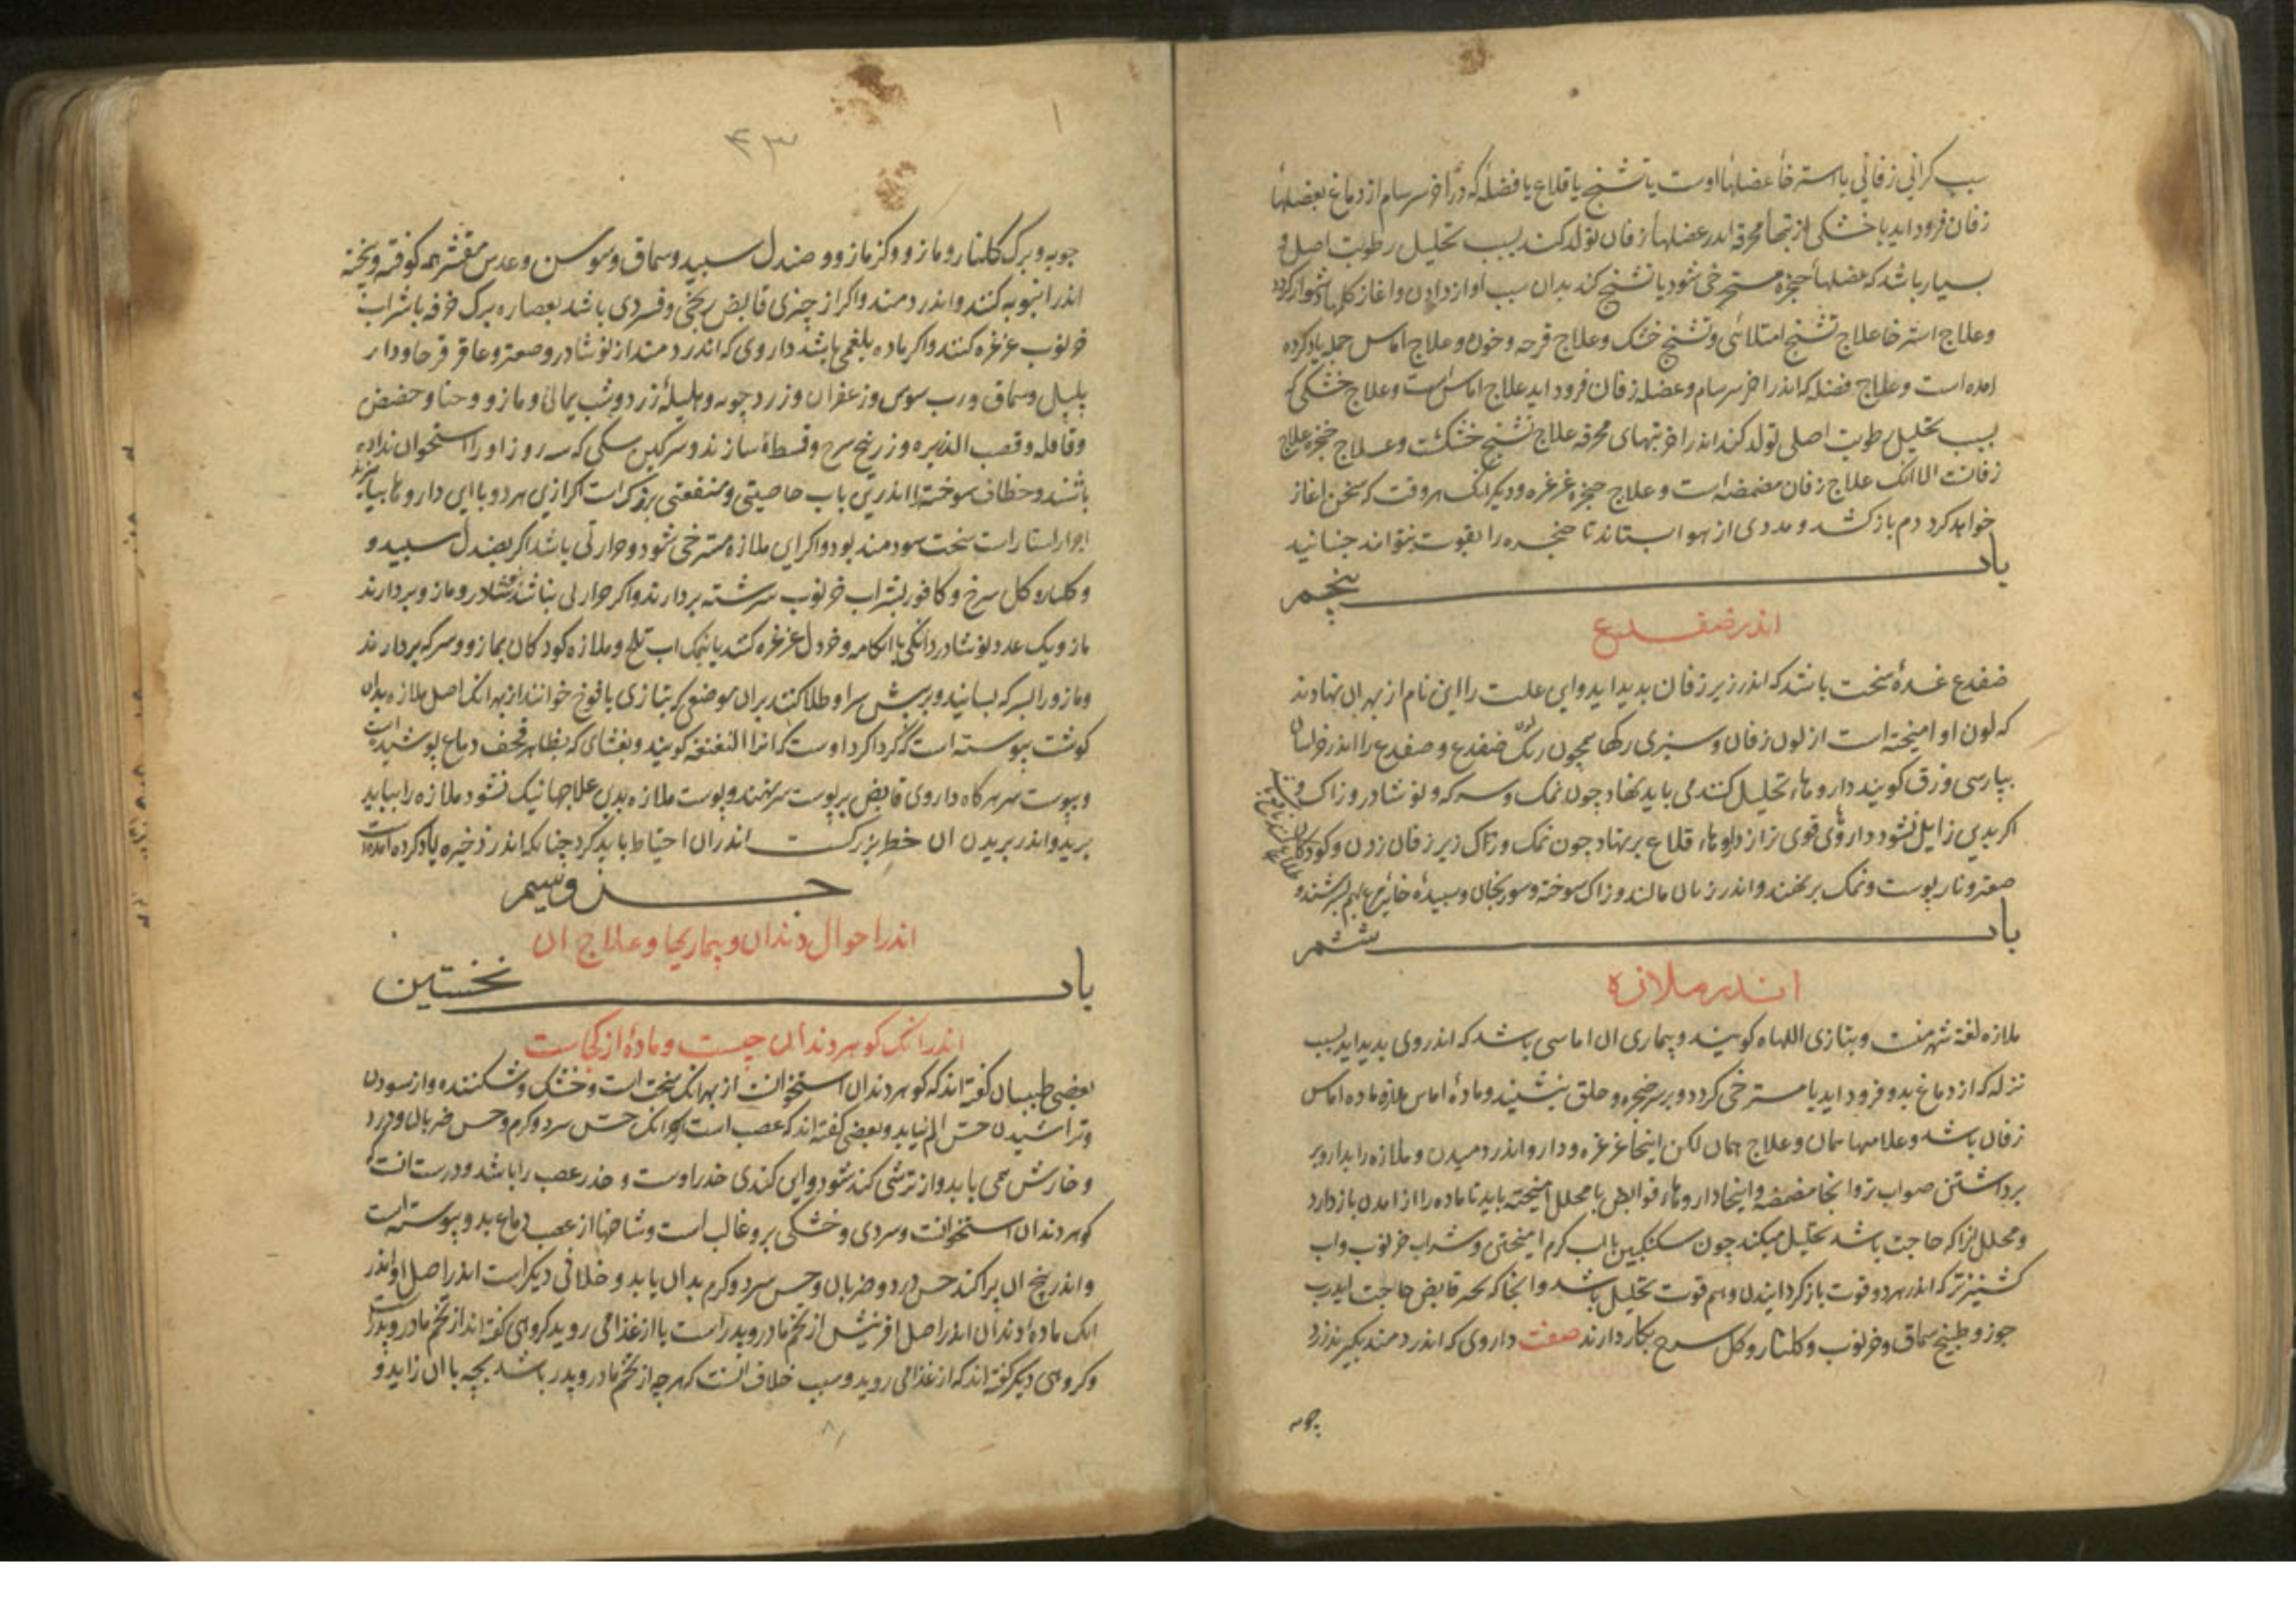 سبب کرانی زفانی یا استرخاء عضلهاء اوست یا تشنج یا قلاع یا فضله که در آخر سرسام از دماغ بعضلهاء
زفان فرود اید یا خشکی از تبهاء محرقه اندر عضلهاء زفان تولد کند بسبب تحلیل رطوبت اصلی و
بسیار باشد که عضلهاء حنجره مسترخی شود یا تشنج کند بدان سبب اواز دادن و اغاز کلمها دشوار کردد
وعلاج استرخا علاج تشنج امتلائی و تشنج خشک وعلاج قرحه و خون وعلاج اماس جمله یاد کرده
امده است وعلاج فضله که اندر اخر سرسام وعضله زفان فرود اید علاج اماس است وعلاج خشکی که
بسبب تحلیل رطوبت اصلی تولد کند اندر اخر تبهای محرقه علاج تشنج خشکست وعلاج حنجره علاج
زفانست الا انک علاج زفان مضمضه است وعلاج حنجره غرغره ودیکر انک هر وقت که سخن اغاز
خواهد کرد دم باز کشد و مددی از هوا بستاند تا حنجره را بقوت بتواند جنبانید
باب پنجم
اندر ضفدع
ضفدع غدهٔ سخت باشد که اندر زیر زفان بدید اید واین علت را این نام از بهر ان نهادند
که لون او امیخته است از لون زفان وسبزی رکها همچون رنک لون ضفدع و ضفدع را اندر خراسان
بپارسی وزق کویند داروهاء تحلیل کننده می باید نهاد چون نمک وسرکه و نوشادر و زاک و
اکر بدین زایل نشود داروهای قوی تر از داروهاء قلاع بر نهاد چون نمک وزاک زیر زفان زدن و کودکان
صعتر و نار پوست و نمک بر نهند و اندر زمان مالند و زاک سوخته و سورنجان وسبیدهٔ خایه مرغ بهم بسرشند و
باب ششم
اندر ملازه
ملازه لغة شهر منست وبتازی اللهاه کویند وبیماری ان اماسی باشد که اندر وی بدید اید بسبب
نزله که از دماغ بدو فرود اید یا مسترخی کردد و بر سر حنجره و حلق بنشیند و مادهٔ اماس ملازه ماده اماس
زفان باشد وعلامتها همان وعلاج همان لکن اینجا غرغره و دارو اندر دمیدن و ملازه را بدارو بر
برداشتن صواب تر و انجا مضمضه و اینجا داروهاء قوابض با محلل امیخته باید تا ماده را از امدن باز دارد
و محلل انرا که حاجت باشد تحلیل میکند چون سکنکبین باب کرم امیختن و شراب خرنوب واب
کشنیز تر که اندر هر دو قوت باز کردانیدن و هم قوت تحلیل باشد و انجا که بحد قابض حاجت اید رب
جوز و طبیخ سماق وخرنوب و کلنار و کل سرخ بکار دارند صفت داروی که اندر دمند بکیرند زرد
چوبه
۴۳
چوبه و برک کلنار و مازو و کزمازو و صندل سبید وسماق و سوسن وعدس مقشر همه کوفته و بیخته
اندر انبوبه کنند و اندر دمند واکر از چیزی قابض یخی و فسردی باشد بعصاره برک خرفه با شراب
خرنوب غرغره کنند واکر ماده بلغمی باشد داروی که اندر دمند از نوشادر و صعتر و عاقر قرحا و دار
پلپل وسماق و رب سوس وزعفران و زردچوبه و هلیلهٔ زرد و شب یمانی و مازو و حنا و حضض
وقاقله وقصب الذریره و زرنیخ سرخ وقسط سازند و سرکین سکی که سه روز او را استخوان داده
باشند و خطاف سوخته را اندرین باب خاصیتی و منفعتی بزرک است اکر ازین هر دو با این داروها بیامیزند
سخت سودمند بود واکر این ملازه مسترخی شود و حرارتی باشد اکر بصندل سبید و
و کلنار و کل سرخ و کافور بشراب خرنوب سرشته بردارند واکر حرارتی نباشد نوشادر و مازو بردارند
مازو یک عدد نوشادر دانکی با ابکامه و خردل غرغره کنند یا نمک اب تلخ و ملازه کودکان بمازو و سرکه بردارند
و مازو را بسرکه بسایند و بر پیش سر او طلا کنند بران موضع که بتازی یافوخ خوانند از بهر انک اصل ملازه بدان
کوشت پیوسته است که کرداکرد اوست که انرا النغنغه کویند و بغشای که بظاهر قحف دماغ پوشیده است
و بپوست سر هرکاه داروی قابض بر پوست سر نهند و پوست ملازه بدین علاجها نیک نشود ملازه را بباید
برید و اندر بریدن ان خطر بزرکست اندران احتیاط باید کرد چنانکه اندر ذخیره یاد کرده امده است
جزو سیم
اندر احوال دندان و بیماریها وعلاج ان
باب نخستین
اندر انک کوهر دندان چیست و مادهٔ از کجاست
بعضی طبیبان کفته اند که کوهر دندان استخوانست از بهر انک سخت است و خشک و شکننده و از سودن
و تراشیدن حس الم نیابد و بعضی کفته اند که عصب است بهر انک حس سرد و کرم و حس ضربان و درد
و خارش می یابد و از ترشی کند شود و این کندی خدر اوست و خدر عصب را باشد و درست انست که
کوهر دندان استخوانست وسردی و خشکی برو غالب است و شاخها از عصب دماغ بدو پیوسته است
و اندر بیخ ان پراکنده حس درد و ضربان و حس سرد و کرم بدان یابد و خلافی دیکر است اندر اصل او اندر
انک ماده او دندان اندر اصل افرینش از تخم مادر و پدر است یا از غذا می روید کروهی کفته اند از تخم مادر و پدر است
و کروهی دیکر کفته اند که از غذا می روید و سبب خلاف انست که هرچه از تخم مادر و پدر باشد بچه با ان زاید و